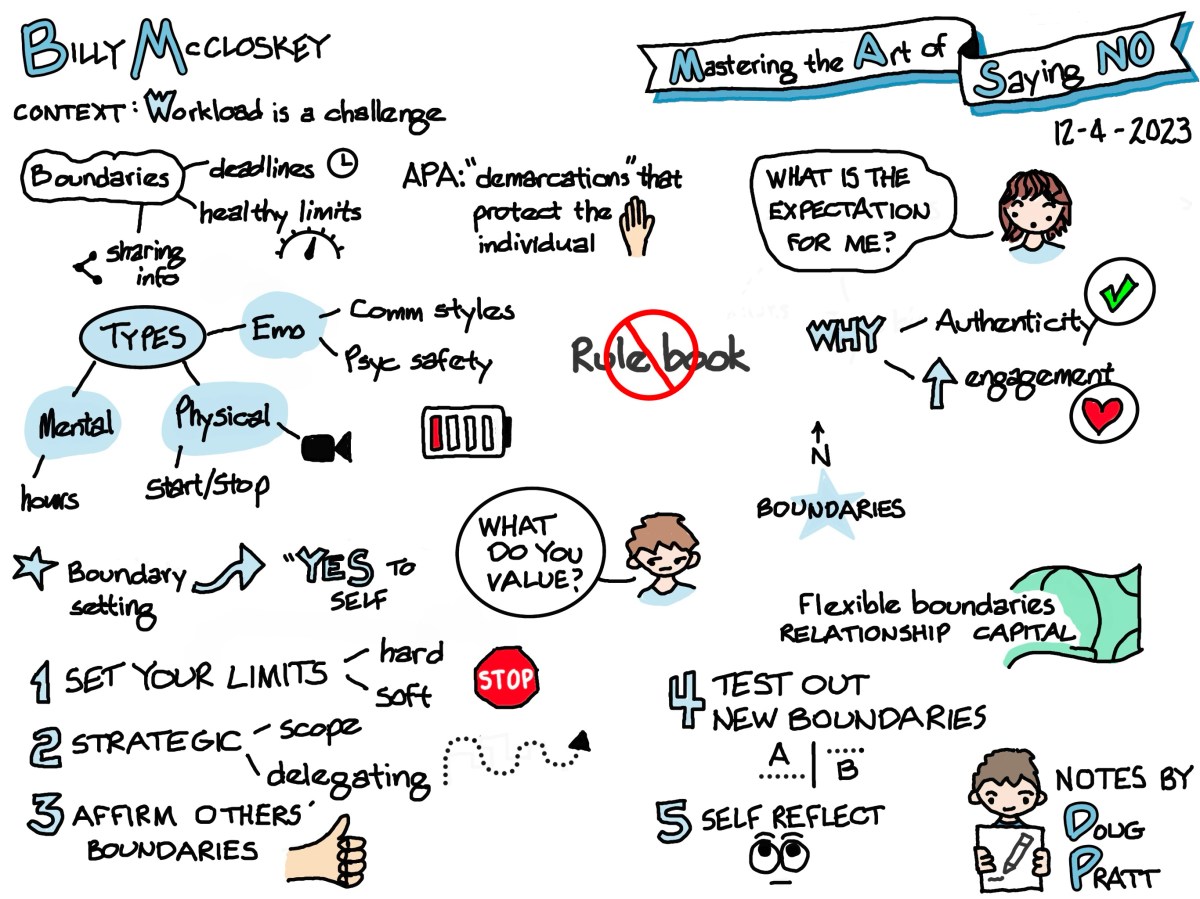 BILLY McCLOSKEY
Mastering the Art of
Saying NO
12-4-2023
CONTEXT: Workload is a challenge
Boundaries
deadlines
healthy limits
sharing
info
APA: "demarcations" that
protect the
individual
WHAT IS THE
EXPECTATION
FOR ME?
TYPES
Emo
Comm styles
Psyc safety
Mental
hours
Physical
Start/Stop
Rule book
WHY
Authenticity
engagement
N
BOUNDARIES
Boundary
setting
"YES TO
SELF
WHAT
DO YOU
VALUE?
Flexible boundaries
RELATIONSHIP CAPITAL
1 SET YOUR LIMITS
hard
soft
STOP
2 STRATEGIC
scope
delegating
3 AFFIRM OTHERS'
BOUNDARIES
4 TEST OUT
NEW BOUNDARIES
A | B
5 SELF REFLECT
NOTES BY
DOUG
PRATT